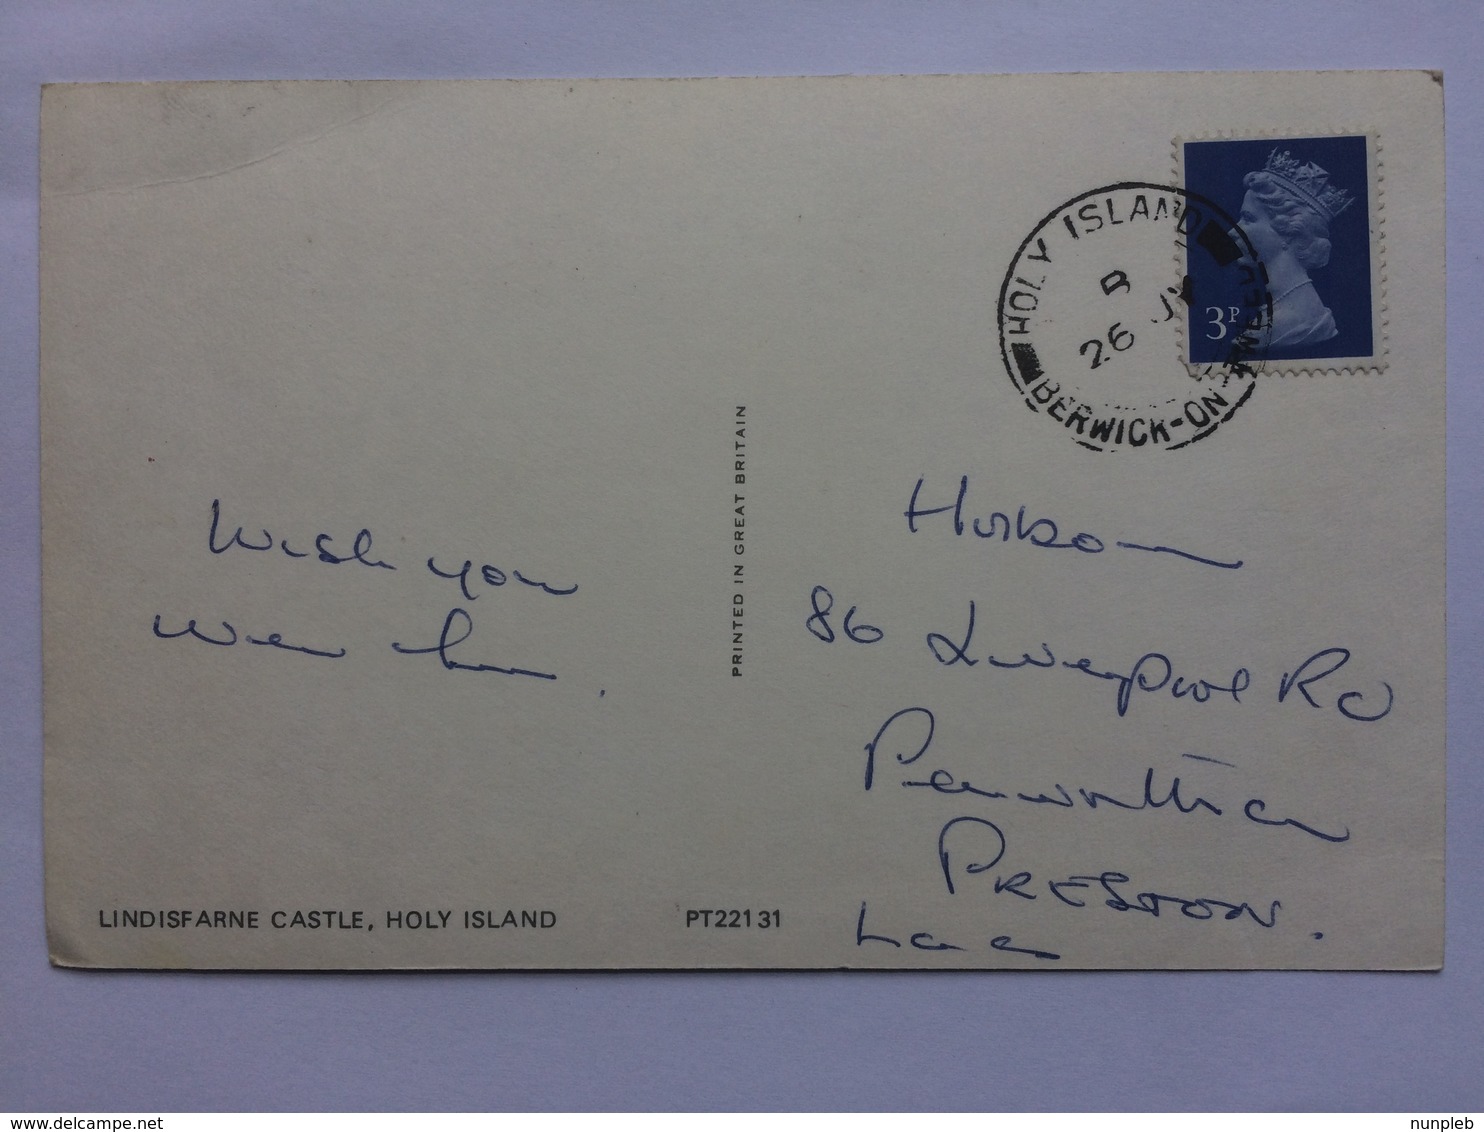 HOLY ISLAND
BERWICK-ON-TWEED
B
26
3P
Wish you
were here.
PRINTED IN GREAT BRITAIN
86 Liverpool Rd
Penwortham
PRESTON.
Lancs
LINDISFARNE CASTLE, HOLY ISLAND
PT22131
www.delcampe.net
nunpleb